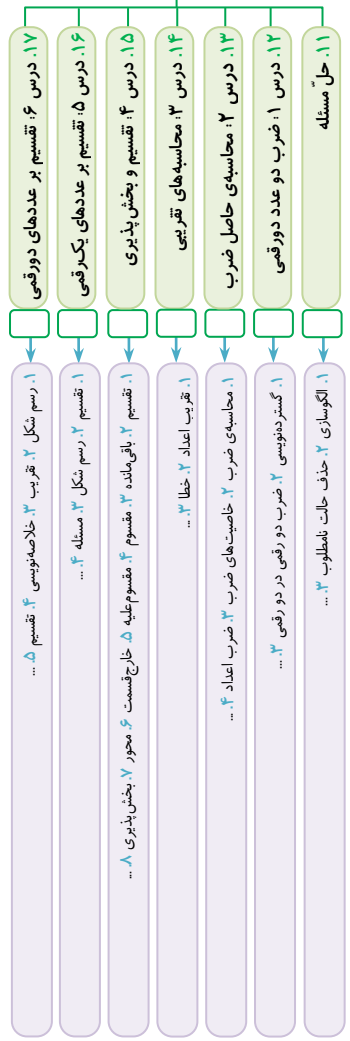 ۱۱. حلّ مسئله
۱. الگوسازی ۲. حذف حالت نامطلوب ۳. ...
۱۲. درس ۱: ضرب دو عدد دورقمی
۱. گسترده‌نویسی ۲. ضرب دو رقمی در دو رقمی ۳. ...
۱۳. درس ۲: محاسبه‌ی حاصل ضرب
۱. محاسبه‌ی ضرب ۲. خاصیت‌های ضرب ۳. ضرب اعداد ۴. ...
۱۴. درس ۳: محاسبه‌های تقریبی
۱. تقریب اعداد ۲. خطا ۳. ...
۱۵. درس ۴: تقسیم و بخش‌پذیری
۱. تقسیم ۲. باقی‌مانده ۳. مقسوم ۴. مقسوم‌علیه ۵. خارج‌قسمت ۶. محور ۷. بخش‌پذیری ۸. ...
۱۶. درس ۵: تقسیم بر عددهای یک‌رقمی
۱. تقسیم ۲. رسم شکل ۳. مسئله ۴. ...
۱۷. درس ۶: تقسیم بر عددهای دورقمی
۱. رسم شکل ۲. تقریب ۳. خلاصه‌نویسی ۴. تقسیم ۵. ...